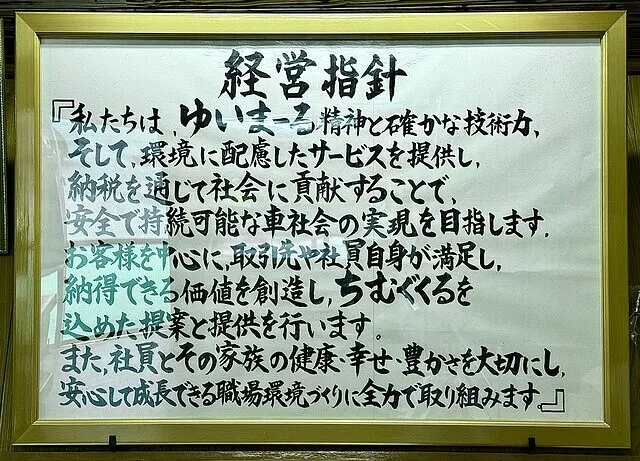 経営指針
『私たちは、ゆいまーる精神と確かな技術力、
そして、環境に配慮したサービスを提供し、
納税を通じて社会に貢献することで、
安全で持続可能な車社会の実現を目指します。
お客様を中心に、取引先や社員自身が満足し、
納得できる価値を創造し、ちむぐくるを
込めた提案と提供を行います。
また、社員とその家族の健康・幸せ・豊かさを大切にし、
安心して成長できる職場環境づくりに全力で取り組みます。』